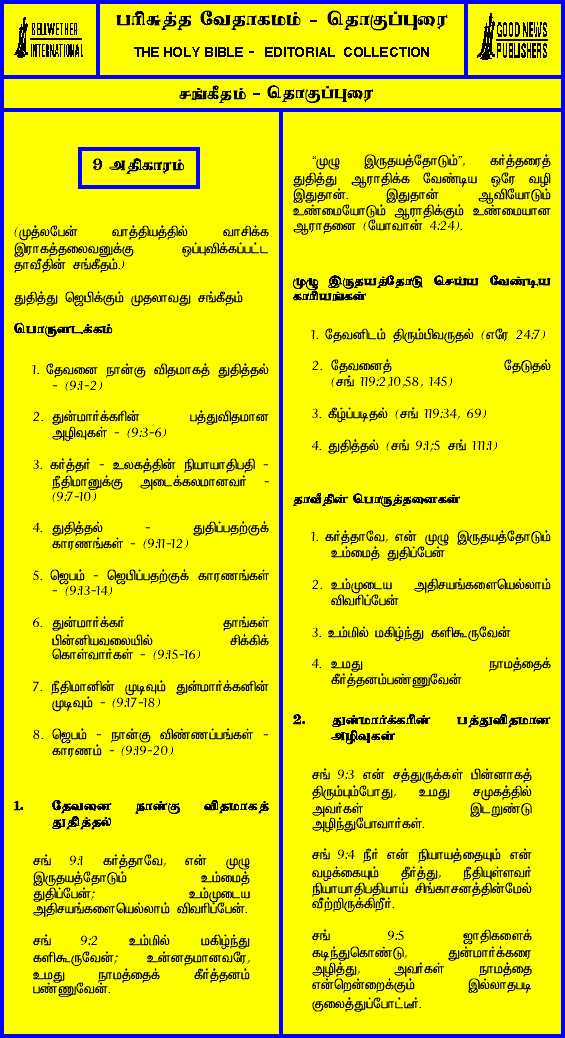 BELLWETHER
INTERNATIONAL
பரிசுத்த வேதாகமம் - தொகுப்புரை
THE HOLY BIBLE - EDITORIAL COLLECTION
GOOD NEWS
PUBLISHERS
சங்கீதம் - தொகுப்புரை
9 அதிகாரம்
(முத்லபேன் வாத்தியத்தில் வாசிக்க
இராகத்தலைவனுக்கு ஒப்புவிக்கப்பட்ட
தாவீதின் சங்கீதம்.)
துதித்து ஜெபிக்கும் முதலாவது சங்கீதம்
பொருளடக்கம்
1. தேவனை நான்கு விதமாகத் துதித்தல்
- (9:1-2)
2. துன்மார்க்கரின் பத்துவிதமான
அழிவுகள் - (9:3-6)
3. கர்த்தர் - உலகத்தின் நியாயாதிபதி -
நீதிமானுக்கு அடைக்கலமானவர் -
(9:7-10)
4. துதித்தல் - துதிப்பதற்குக்
காரணங்கள் - (9:11-12)
5. ஜெபம் - ஜெபிப்பதற்குக் காரணங்கள்
- (9:13-14)
6. துன்மார்க்கர் தாங்கள்
பின்னியவலையில் சிக்கிக்
கொள்வார்கள் - (9:15-16)
7. நீதிமானின் முடிவும் துன்மார்க்கனின்
முடிவும் - (9:17-18)
8. ஜெபம் - நான்கு விண்ணப்பங்கள் -
காரணம் - (9:19-20)
1. தேவனை நான்கு விதமாகத்
துதித்தல்
சங் 9:1 கர்த்தாவே, என் முழு
இருதயத்தோடும் உம்மைத்
துதிப்பேன்; உம்முடைய
அதிசயங்களையெல்லாம் விவரிப்பேன்.
சங் 9:2 உம்மில் மகிழ்ந்து
களிகூருவேன்; உன்னதமானவரே,
உமது நாமத்தைக் கீர்த்தனம்
பண்ணுவேன்.
“முழு இருதயத்தோடும்”, கர்த்தரைத்
துதித்து ஆராதிக்க வேண்டிய ஒரே வழி
இதுதான். இதுதான் ஆவியோடும்
உண்மையோடும் ஆராதிக்கும் உண்மையான
ஆராதனை (யோவான் 4:24).
முழு இருதயத்தோடு செய்ய வேண்டிய
காரியங்கள்
1. தேவனிடம் திரும்பிவருதல் (எரே 24:7)
2. தேவனைத் தேடுதல்
(சங் 119:2,10,58, 145)
3. கீழ்ப்படிதல் (சங் 119:34, 69)
4. துதித்தல் (சங் 9:1;5 சங் 111:1)
தாவீதின் பொருத்தனைகள்
1. கர்த்தாவே, என் முழு இருதயத்தோடும்
உம்மைத் துதிப்பேன்
2. உம்முடைய அதிசயங்களையெல்லாம்
விவரிப்பேன்
3. உம்மில் மகிழ்ந்து களிகூருவேன்
4. உமது நாமத்தைக்
கீர்த்தனம்பண்ணுவேன்
2. துன்மார்க்கரின் பத்துவிதமான
அழிவுகள்
சங் 9:3 என் சத்துருக்கள் பின்னாகத்
திரும்பும்போது, உமது சமுகத்தில்
அவர்கள் இடறுண்டு
அழிந்துபோவார்கள்.
சங் 9:4 நீர் என் நியாயத்தையும் என்
வழக்கையும் தீர்த்து, நீதியுள்ளவர்
நியாயாதிபதியாய் சிங்காசனத்தின்மேல்
வீற்றிருக்கிறீர்.
சங் 9:5 ஜாதிகளைக்
கடிந்துகொண்டு, துன்மார்க்கரை
அழித்து, அவர்கள் நாமத்தை
என்றென்றைக்கும் இல்லாதபடி
குலைத்துப்போட்டீர்.